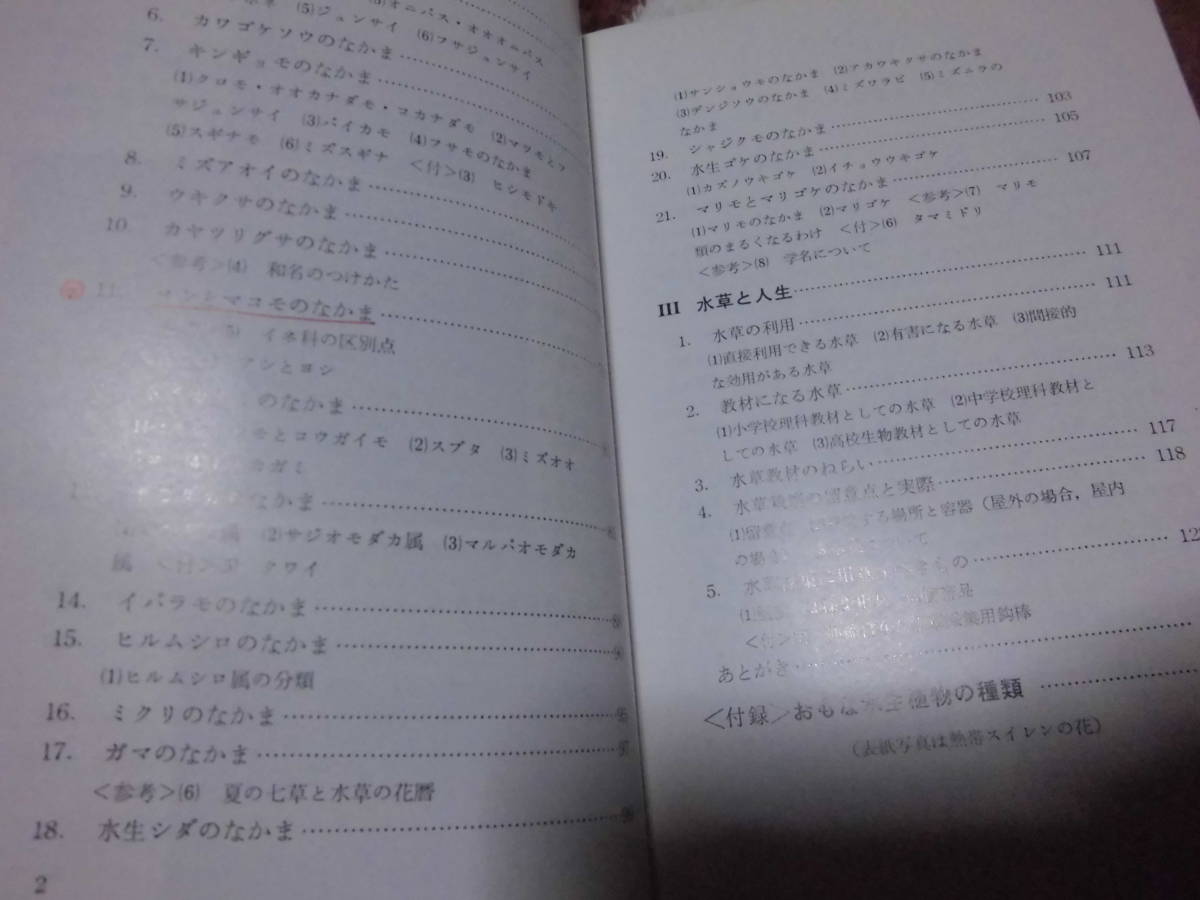 (5)ジュンサイ (6)フサジュンサイ
6. カワゴケソウのなかま
7. キンギョモのなかま
(1)クロモ・オオカナダモ・コカナダモ (2)マツモとフ
サジュンサイ (3)バイカモ (4)フサモのなかま
(5)スギナモ (6)ミズスギナ <付>(3) ヒシモドキ
8. ミズアオイのなかま
9. ウキクサのなかま
10. カヤツリグサのなかま
<参考>(4) 和名のつけかた
11. マコモのなかま
5) イネ科の区別点
アシとヨシ
のなかま
とコウガイモ (2)スブタ (3)ミズオオ
カガミ
のなかま
属 (2)サジオモダカ属 (3)マルバオモダカ
属 <付>(5) クワイ
14. イバラモのなかま
15. ヒルムシロのなかま
(1)ヒルムシロ属の分類
16. ミクリのなかま
17. ガマのなかま
<参考>(6) 夏の七草と水草の花暦
18. 水生シダのなかま
2
(1)サンショウモのなかま (2)アカウキクサのなかま
(3)デンジソウのなかま (4)ミズワラビ (5)ミズニラの
なかま
19. シャジクモのなかま 103
20. 水生ゴケのなかま 105
(1)カズノウキゴケ (2)イチョウウキゴケ
21. マリモとマリゴケのなかま 107
(1)マリモのなかま (2)マリゴケ <参考>(7) マリモ
類のまるくなるわけ <付>(6) タマミドリ
<参考>(8) 学名について
III 水草と人生 111
1. 水草の利用 111
(1)直接利用できる水草 (2)有害になる水草 (3)間接的
な効用がある水草
2. 教材になる水草 113
(1)小学校理科教材としての水草 (2)中学校理科教材と
しての水草 (3)高校生物教材としての水草
3. 水草教材のねらい 117
4. 水草栽培の留意点と実際 118
(1)留意点 する場所と容器(屋外の場合, 屋内
の場合 ついて
5. 水草 もの 12
(1) 品
<付> 採集用鈎棒
あとがき
<付録>おもな水生植物の種類
(表紙写真は熱帯スイレンの花)